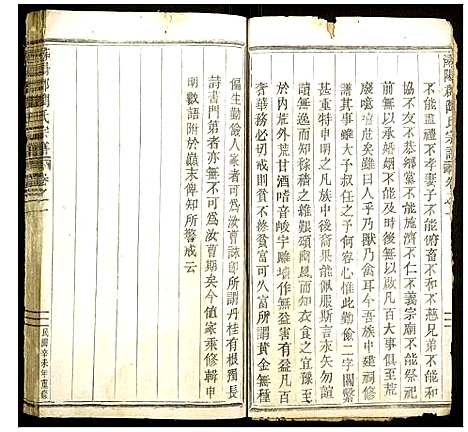 不能尊禮不孝妻子不能俯畜不慈兄弟不能
協和不友不恭鄉黨不能施濟不仁不義宗廟不能祭祀
後無以承婚姻不能及時後無以啟凡百大事俱至荒
廢可危矣雖曰人乎乃獸乃禽耳今吾族中建祠修
譜其事雖大子叔出之予何容心惟此勤儉二字關繫
甚重特申明之凡族中後裔能佩服斯言永矢勿諠
語無逸而知稼穡之維艱頌商風而知衣食之宜豫至
於內荒外荒甘酒嗜音峻宇雕墻作無益害有益凡百
奢華務必革除不終貧富可久富所謂黃金無種
偏生勤儉人家者可為汝曹誦即所謂丹桂有根獨長
詩書門第者亦無不可為汝曹期矣今值家乘修輯申
明數語附於巔末俾知所警戒云
民國辛未年重修